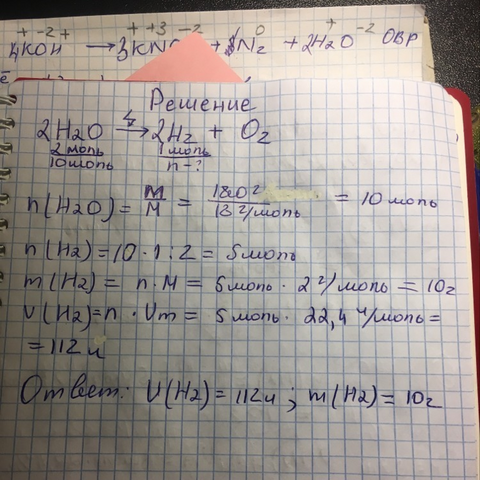 + -2 +
+ +3 -2
0
+ -2
4KOH → 3KNO + N2 + 2H2O ОВР
Решение
2H2O → 2H2 + O2
2 моль 1 моль
10 моль n-?
n(H2O) = M/M = 180г / 18г/моль = 10 моль
n(H2) = 10 · 1 : 2 = 5 моль
m(H2) = n · M = 5 моль · 2 г/моль = 10г
V(H2) = n · Vm = 5 моль · 22,4 л/моль =
= 112 л
Ответ: V(H2) = 112л ; m(H2) = 10г